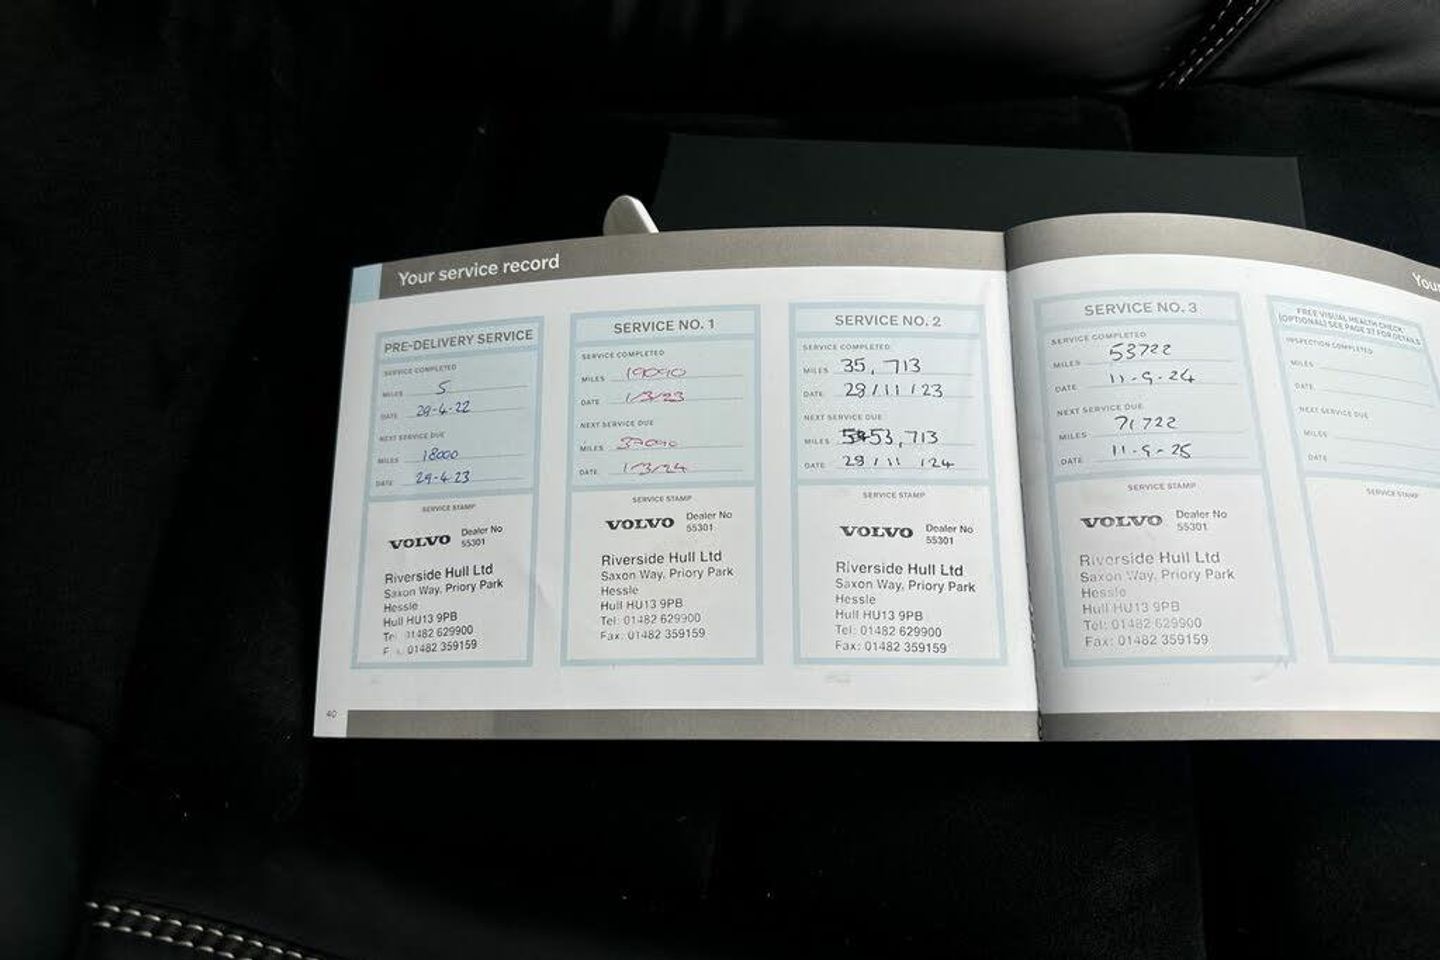 Your service record
PRE-DELIVERY SERVICE
SERVICE COMPLETED
MILES 5
DATE 29-4-22
NEXT SERVICE DUE
MILES 18000
DATE 29-4-23
SERVICE STAMP
VOLVO Dealer No
55301
Riverside Hull Ltd
Saxon Way, Priory Park
Hessle
Hull HU13 9PB
Tel: 01482 629900
01482 359159
SERVICE NO. 1
SERVICE COMPLETED
MILES 19090
DATE 1/3/23
NEXT SERVICE DUE
MILES 37090
DATE 1/3/24
SERVICE STAMP
VOLVO Dealer No
55301
Riverside Hull Ltd
Saxon Way, Priory Park
Hessle
Hull HU13 9PB
Tel: 01482 629900
Fax: 01482 359159
SERVICE NO. 2
SERVICE COMPLETED
MILES 35,713
DATE 29/11/23
NEXT SERVICE DUE
MILES 53,713
DATE 29/11/24
SERVICE STAMP
VOLVO Dealer No
55301
Riverside Hull Ltd
Saxon Way, Priory Park
Hessle
Hull HU13 9PB
Tel: 01482 629900
Fax: 01482 359159
40
You
SERVICE NO. 3
SERVICE COMPLETED
MILES 53722
DATE 11-9-24
NEXT SERVICE DUE
MILES 71722
DATE 11-9-25
SERVICE STAMP
VOLVO Dealer No
55301
Riverside Hull Ltd
Saxon Way, Priory Park
Hessle
Hull HU13 9PB
Tel: 01482 629900
Fax: 01482 359159
FREE VISUAL HEALTH CHECK
(OPTIONAL) SEE PAGE 37 FOR DETAILS
INSPECTION COMPLETED
MILES
DATE
NEXT SERVICE DUE
MILES
DATE
SERVICE STAMP